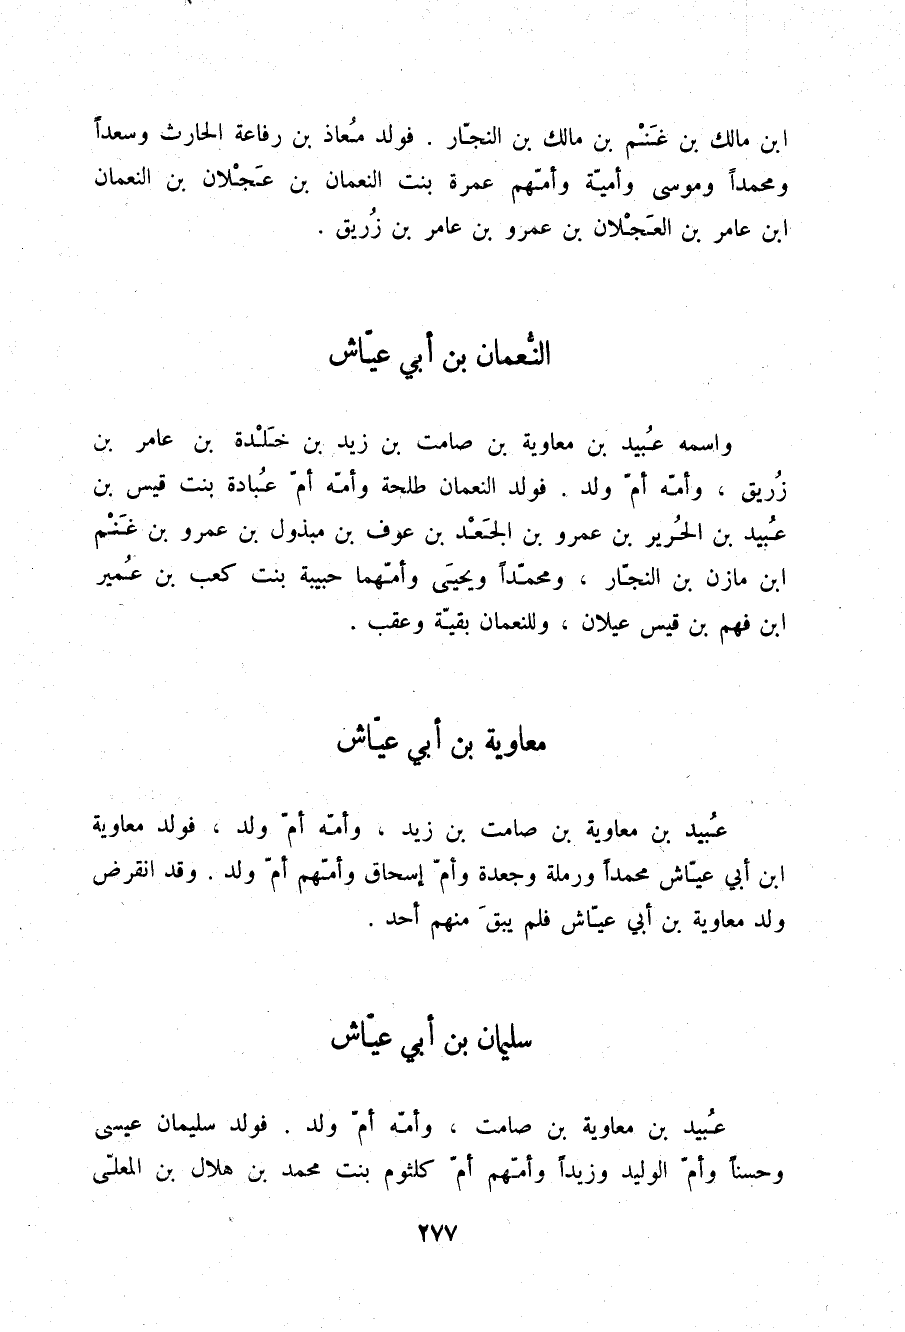 ابن مالك بن غَنْم بن مالك بن النجّار . فولد مُعاذ بن رفاعة الحارث وسعداً
ومحمداً وموسى وأميّة وأمّهم عمرة بنت النعمان بن عَجْلان بن النعمان
ابن عامر بن العَجْلان بن عمرو بن عامر بن زُريق .
النُّعمان بن أبي عيّاش
واسمه عُبيد بن معاوية بن صامت بن زيد بن خَلْدة بن عامر بن
زُريق ، وأمّه أمّ ولد . فولد النعمان طلحة وأمّه أمّ عُبادة بنت قيس بن
عُبيد بن الحُرير بن عمرو بن الجَعْد بن عوف بن مبذول بن عمرو بن غَنْم
ابن مازن بن النجّار ، ومحمّداً ويحيَى وأمّهما حبيبة بنت كعب بن عُمير
ابن فهم بن قيس عيلان ، وللنعمان بقيّة وعقب .
معاوية بن أبي عيّاش
عُبيد بن معاوية بن صامت بن زيد ، وأمّه أمّ ولد ، فولد معاوية
ابن أبي عيّاش محمداً ورملة وجعدة وأمّ إسحاق وأمّهم أمّ ولد . وقد انقرض
ولد معاوية بن أبي عيّاش فلم يبقَ منهم أحد .
سليمان بن أبي عيّاش
عُبيد بن معاوية بن صامت ، وأمّه أمّ ولد . فولد سليمان عيسى
وحسناً وأمّ الوليد وزيداً وأمّهم أمّ كلثوم بنت محمد بن هلال بن المعلّى
٢٧٧